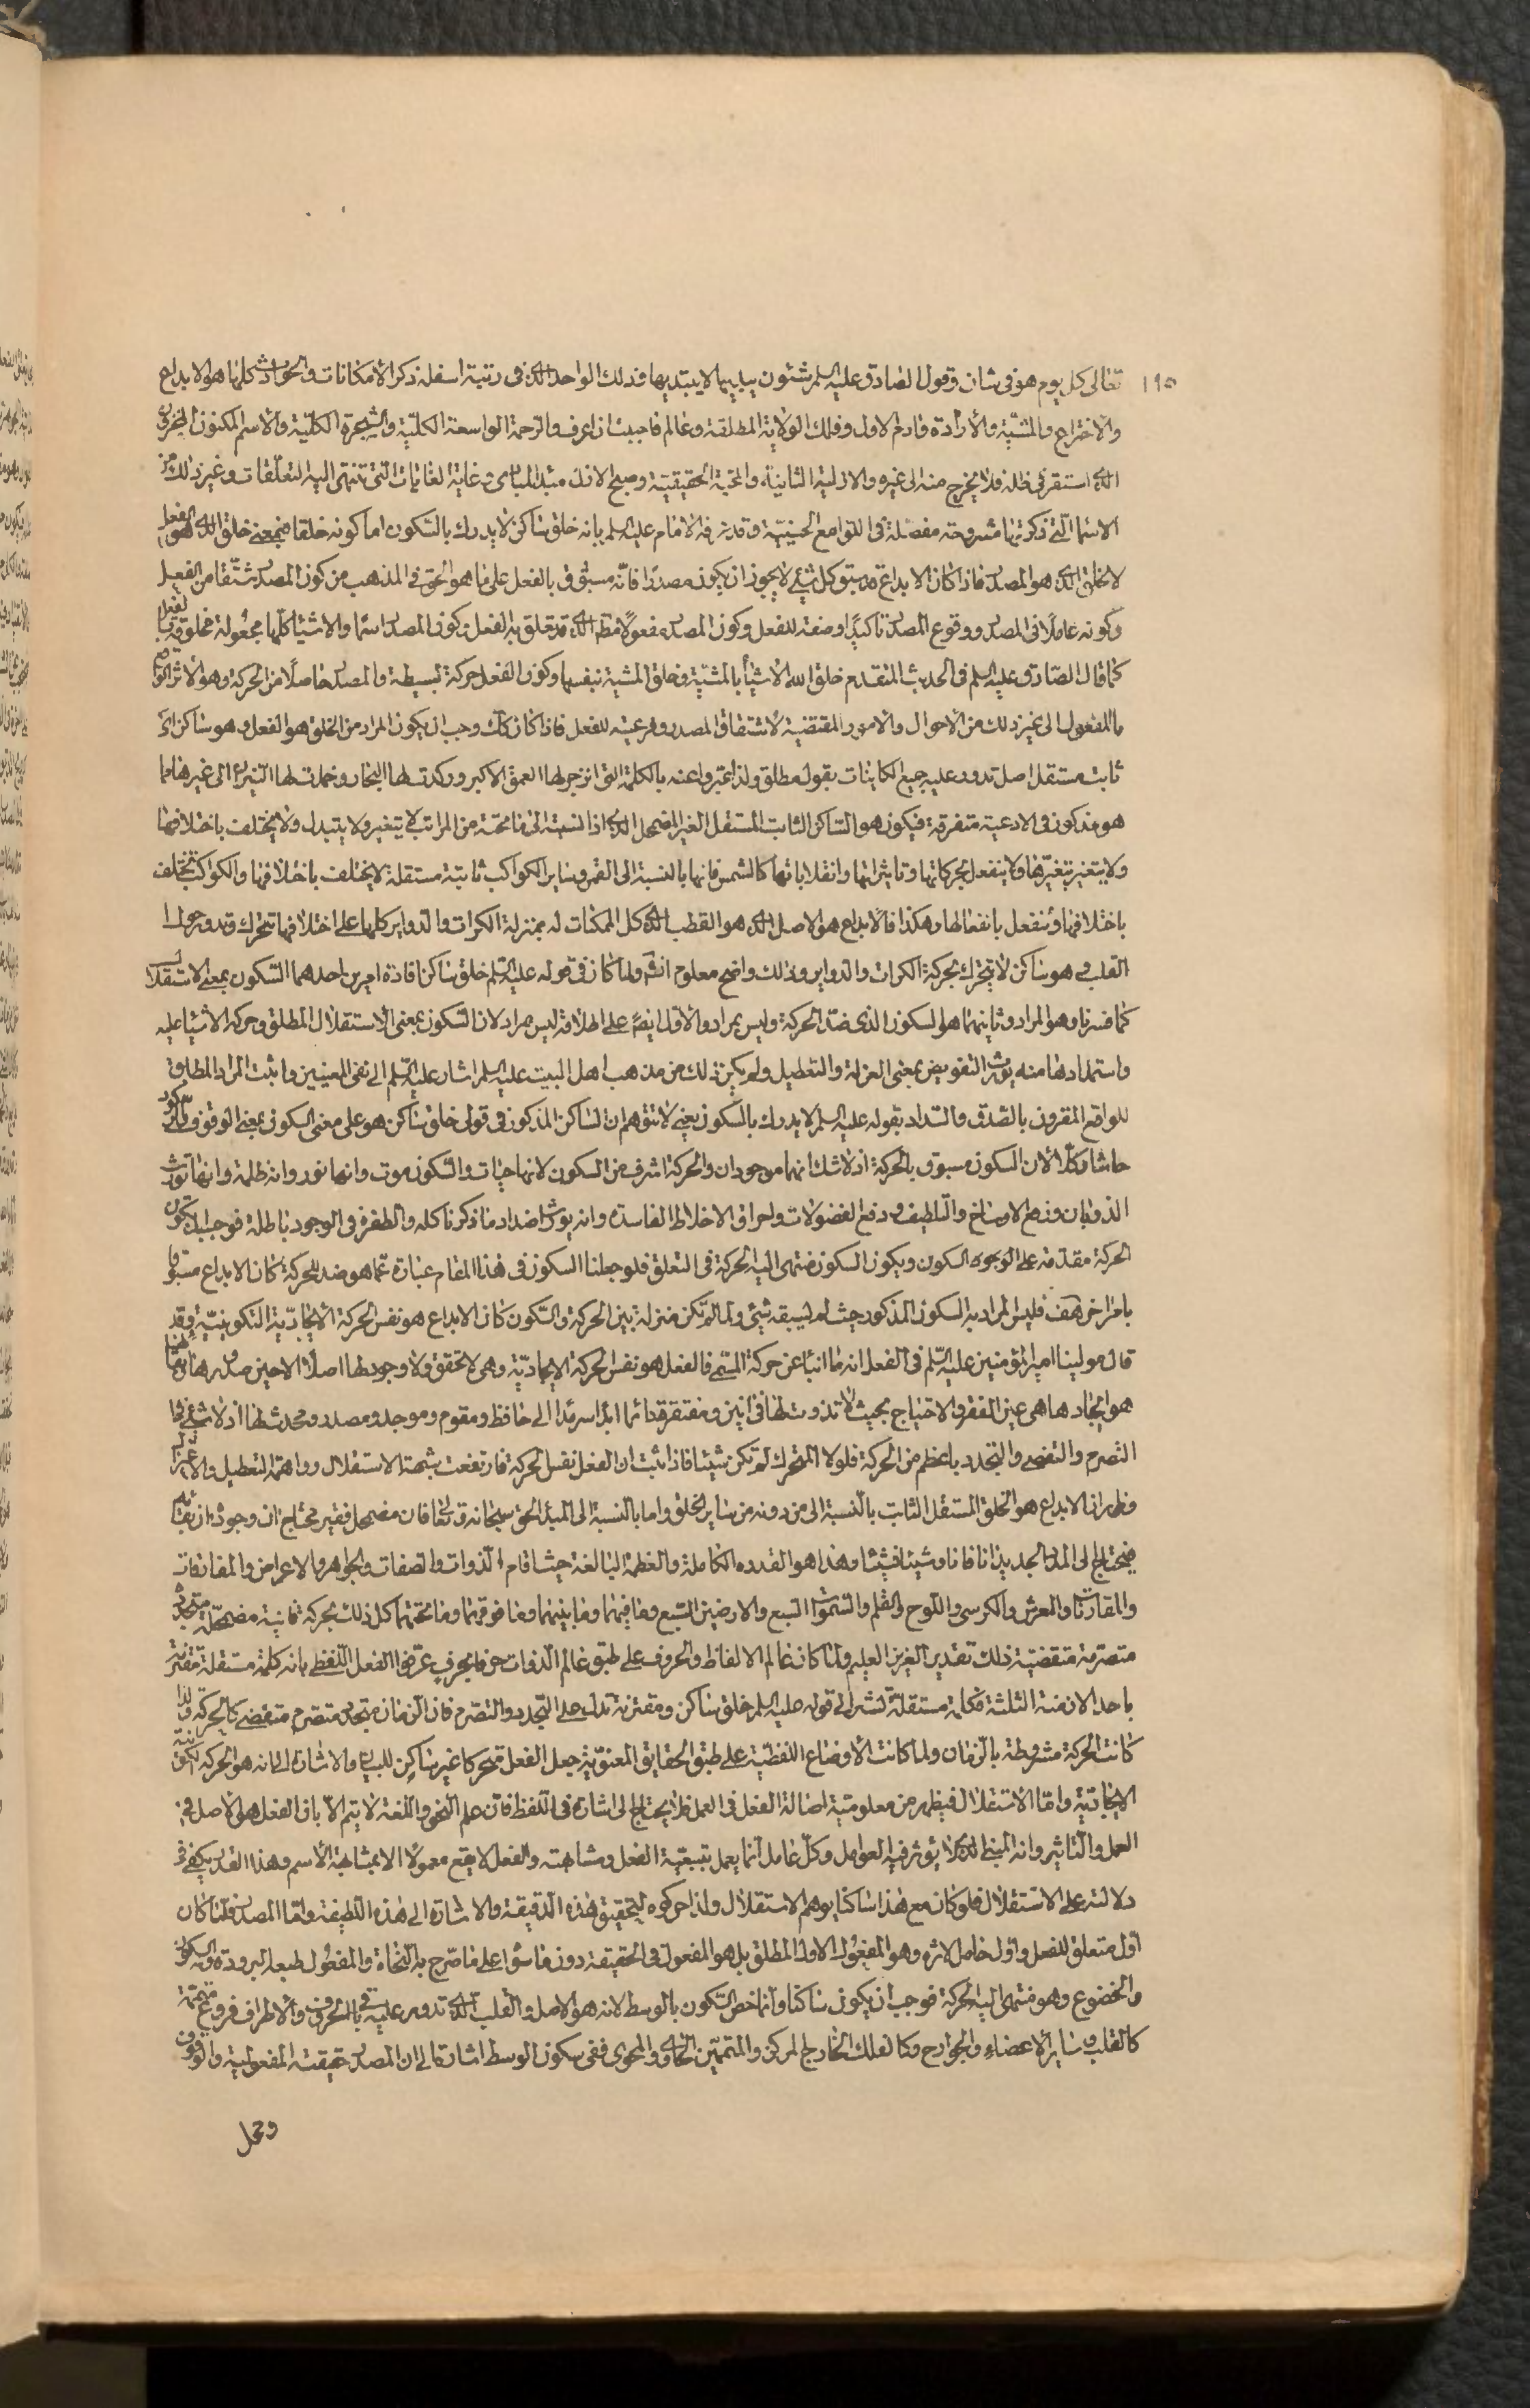 ١٩٥ تعالى كل يوم هو فى شان وقول الصادق عليه السلم شئون يبديها لا يبتديها فذلك الواحد الذى فى رتبة اسفله ذكر الأمكانات والحوادث كلها هو الابداع
والاختراع والمشية والأرادة وادم الاول وفلك الولاية المطلقة وعالم فاحببت ان اعرف والرحمة الواسعة الكلية والشجرة الكلية والاسم المكنون المخزون
الذى استقر فى ظله فلا يخرج منه الى غيره والازلية الثانية والمحبة الحقيقية وصبح الازل مبدء المبادى وغاية الغايات التى تنتهى اليه التعلقات وغير ذلك من
الاسماء التى ذكرتها مشروحة مفصلة فى اللوامع الحسينية وقد عرفه الامام عليه السلم بانه خلق ساكن لا يدرك بالسكون اما كونه خلقا فبمعنى خلق الذى هو الفعل
لا خلق الذى هو المصدر فاذا كان الابداع قد سبق كل شئ لا يجوز ان يكون مصدرًا فانه مسبوق بالفعل على ما هو الحق فى المذهب من كون المصدر مشتقا من الفعل
وكونه عاملًا فى المصدر ووقوع المصدر تأكيدًا وصفة للفعل وكون المصدر مفعولًا مطلقا الذى قد تعلق به الفعل وكون المصدر اسمًا والاشياء كلها مجعولة مخلوقة بالفعل
كما قال الصادق عليه السلم فى الحديث المتقدم خلق الله الاشياء بالمشية وخلق المشية بنفسها وكون الفعل حركة بسيطة والمصدر حاصلًا من الحركة وهو الأثر الواقع
بالمفعول الى غير ذلك من الأحوال والامور المقتضية لأشتقاق المصدر وفرعيته للفعل فاذا كان كك وجب ان يكون المراد من الخلق هو الفعل وهو ساكن اى
ثابت مستقل اصل تدور عليه جميع الكاينات بقول مطلق ولذا عبروا عنه بالكلمة التى انزجر لها العمق الاكبر وركدت لها البحار وخمدت لها النيران الى غيرها مما
هو مذكور فى الادعية متفرقة فيكون هو الساكن الثابت المستقل الغير المضمحل الذى اذا نسبته الى ما تحته من المراتب لا يتغير ولا يتبدل ولا يختلف باختلافها
ولا يتغير بتغيرها ولا ينفعل بحركاتها وتاثيراتها وانقلاباتها كالشمس فانها بالنسبة الى القمر وساير الكواكب ثابتة مستقلة لا يختلف باختلافها والكواكب تختلف
باختلافها وتنفعل بانفعالها وهكذا فالابداع هو الاصل الذى هو القطب الذى كل الممكنات له بمنزلة الكرات والدواير كلها على اختلافها تتحرك وتدور حول
القطب وهو ساكن لا يتحرك بحركة الكرات والدواير وذلك واضح معلوم انشه ولما كان فى قوله عليه السلم خلق ساكن افادة امرين احدهما السكون بمعنى الاستقلال
كما فسرنا وهو المراد وثانيهما هو السكون الذى ضد الحركة وليس بمراد والأول ايضًا على اطلاقه ليس مراد لان السكون بمعنى الاستقلال المطلق وحركة الاشياء عليه
واستمدادها منه يورث التفويض بمعنى العزلة والتعطيل ولم يكن ذلك من مذهب اهل البيت عليه السلم اشار عليه السلم الى نفى المعنيين واثبت المراد المطابق
للواقع المقرون بالصدق والسداد بقوله عليه السلم لا يدرك بالسكون يعنى لا تتوهم ان الساكن المذكور فى قولى خلق ساكن هو على معنى السكون بمعنى الوقوف والركود
حاشا وكلا لان السكون مسبوق بالحركة اذ لا شك انهما موجودان والحركة اشرف من السكون لانها حيات والسكون موت وانها نور وانه ظلمة وانها تورث
الذوبان ونضح الاوساخ والتلطيف ودفع الفضولات واحراق الاخلاط الفاسدة وانه يورث اضداد ما ذكرنا كله والطفرة فى الوجود باطلة فوجب ان تكون
الحركة مقدمة على السكون ويكون السكون منتهى اليه الحركة فى التعلق فلو جعلنا السكون فى هذا المقام عبارة عما هو ضد للحركة كان الابداع مسبوقا
بامر اخر هف فليس المراد به السكون المذكور حيث لم يسبقه شئ ولما لم تكن منزلة بين الحركة والسكون كان الابداع هو نفس الحركة الأيجادية التكوينية وقد
قال مولينا امير المؤمنين عليه السلم فى الفعل انه ما انبأ عن حركة المسمى فالفعل هو نفس الحركة الايجادية وهى لا تحقق ولا وجود لها اصلًا الا حين صدورها وايجادها
هو ايجادها هى عين الفقر والاحتياج بحيث لا تذوت لها فى انين ومفتقرة دائما ابدًا سرمدًا الى حافظ ومقوم وموجد ومصدر ومحدث لها اذ لا شئ فى
التصرم والتقضى والتجدد باعظم من الحركة فلولا المتحرك لم تكن شيئا فاذا ثبت ان الفعل نفس الحركة فارتفعت شبهة الاستقلال وواهمة التعطيل والاعتزال
وظهر ان الابداع هو الخلق المستقل الثابت بالنسبة الى من دونه من ساير الخلق واما بالنسبة الى المبدء الحق سبحانه وتعالى فان مضمحل فقير محتاج ان وجوده ان بقائه
فيحتاج الى المدد الجديد انا فانا وشيئا فشيئا وهذا هو القدرة الكاملة والعظمة البالغة حيث اقام الذوات والصفات والجواهر والاعراض والمفارقات
والمقارنات والعرش والكرسى واللوح والقلم والسموات السبع والارضين السبع وما فيهما وما بينهما وما فوقهما وما تحتهما كل ذلك بحركة فانية مضمحلة متجددة
متصرمة متقضية ذلك تقدير العزيز العليم ولما كان عالم الالفاظ والحروف على طبق عالم الذوات حرفا بحرف عرفوا الفعل اللفظى بانه كلمة مستقلة مقترنة
باحد الازمنة الثلثة فكلمة مستقلة تشير الى قوله عليه السلم خلق ساكن ومقترنة تدل على التجدد والتصرم فان الزمان متجدد متصرم متقضى كالحركة ولذا
كانت الحركة مشروطة بالزمان ولما كانت الأوضاع اللفظية على طبق الحقايق المعنوية جعل الفعل متحركا غير ساكن للبيان والاشارة الى انه هو الحركة الكونية
الايجادية واما الاستقلال فيظهر من معلومية اصالة الفعل فى العمل فلا يحتاج الى اشارة فى اللفظ فان علم النحو واللغة لا يتم الا بان الفعل هو الاصل فى
العمل والتاثير وانه المبنى الذى لا يؤثر فيه العوامل وكل عامل انما يعمل بتبعية الفعل ومشابهته والفعل لا يقع معمولًا الا بمشابهة الأسم وهذا القدر يكفى فى
دلالته على الاستقلال فلو كان مع هذا ساكنا يوهم الاستقلال ولذا حركوه لتحقيق هذه الدقيقة والاشارة الى هذه اللطيفة واما المصدر فلما كان
اول متعلق للفعل واول حامل لاثره وهو المفعول الاول المطلق بل هو المفعول فى الحقيقة دون ما سواه على ما صرح به النحاة والمفعول طبعه البرودة وله السكون
والخضوع وهو منتهى اليه الحركة فوجب ان يكون ساكنا وانما خص السكون بالوسط لانه هو الاصل والقلب الذى تدور عليه باقى الحروف والأطراف فروع متممة
كالقلب وساير الاعضاء والجوارح وكالفلك الخارج المركز والمتممين الحاوى والمحوى ففى سكون الوسط اشارة الى ان المصدر حقيقته المفعولية والوقوف
ومحل